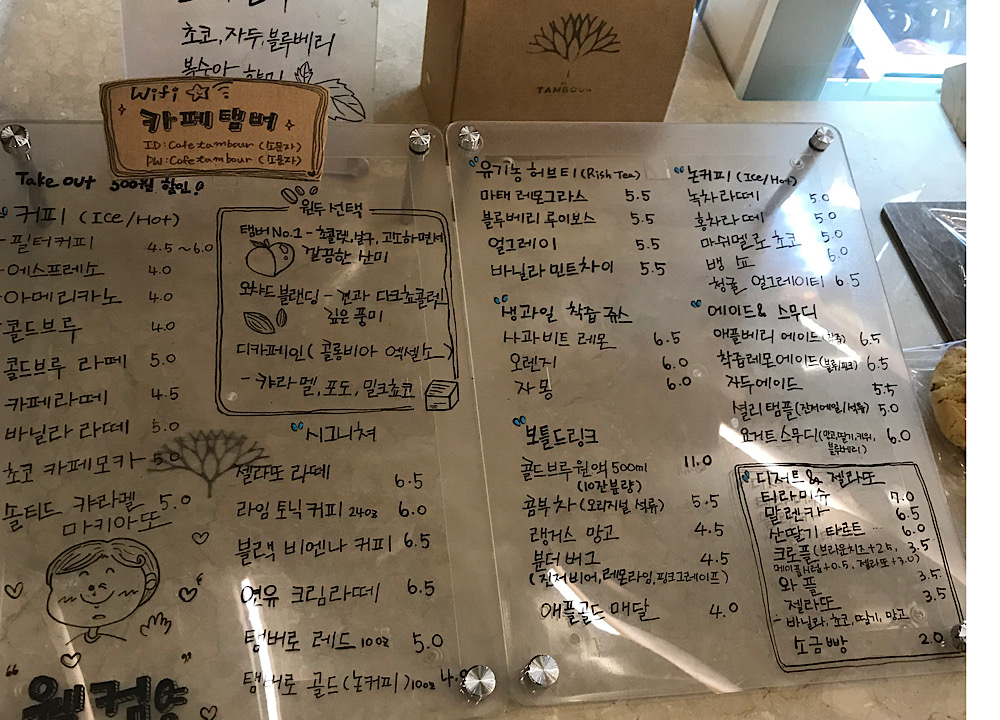 초코, 자두, 블루베리
복숭아
TAMBOUR
Wifi
카페탬버
ID: Cafetambour (소문자)
PW: Cafetambour (소문자)
Take out 500원 할인!
커피 (Ice/Hot)
- 필터커피 4.5~6.0
- 에스프레소 4.0
- 아메리카노 4.0
콜드브루 4.0
콜드브루 라떼 5.0
카페라떼 4.5
바닐라 라떼 5.0
초코 카페모카 5.0
솔티드 캬라멜 5.0
마키아또
웰컴
원두선택
탬버 No.1 - 초콜렛, 살구, 고소하면서
깔끔한 산미
와사드 블랜딩 - 견과 다크쵸콜렛
깊은 풍미
디카페인 (콜롬비아 엑셀소)
- 캬라멜, 포도, 밀크쵸코
시그니쳐
젤라또 라떼 6.5
라임 토닉 커피 24oz 6.0
블랙 비엔나 커피 6.5
연유 크림라떼 6.5
탬버로 레드 10oz 5.0
탬버로 골드 (논커피) 10oz 4.8
유기농 허브티 (Rish Tea)
마태 레몬그라스 5.5
블루베리 루이보스 5.5
얼그레이 5.5
바닐라 민트차이 5.5
생과일 착즙 쥬스
사과 비트 레몬 6.5
오렌지 6.0
자몽 6.0
보틀드링크
콜드브루 원액 500ml 11.0
(10잔 분량)
콤부차 (오리지널, 석류) 5.5
랭거스 망고 4.5
분더버그 4.5
(진저비어, 레몬라임, 핑크그레이프)
애플골드 메달 4.0
논커피 (Ice/Hot)
녹차라떼 5.0
홍차라떼 5.0
마쉬멜로 초코 5.0
뱅쇼 6.0
청귤 얼그레이티 6.5
에이드 & 스무디
애플베리 에이드 6.5
착즙레몬에이드 (블루/핑크) 6.5
자두에이드 5.5
셜리 템플 (진저에일/석류) 5.0
요거트 스무디 (망고, 딸기, 키위, 6.0
블루베리)
디저트 & 젤라또
티라미슈 7.0
말렌카 6.5
산딸기 타르트 6.0
크로플 (브라운치즈 +2.5, 3.5
메이플시럽 +0.5, 젤라또 +3.0)
와플 3.5
젤라또 3.5
- 바닐라, 초코, 딸기, 망고
소금빵 2.0